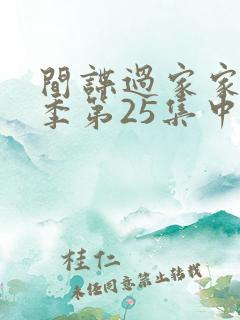 間諜過家家
季第25集中
桂仁
未任同意禁止转载